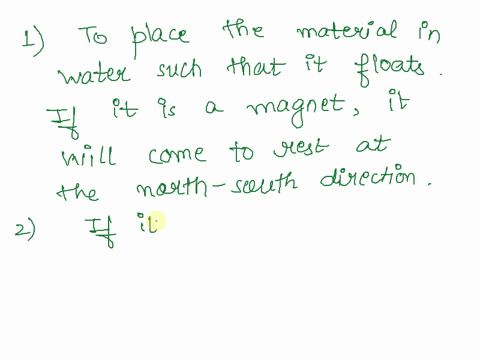 1) To place the material in
water such that it floats.
If it is a magnet, it
will come to rest at
the north-south direction.
2) If it